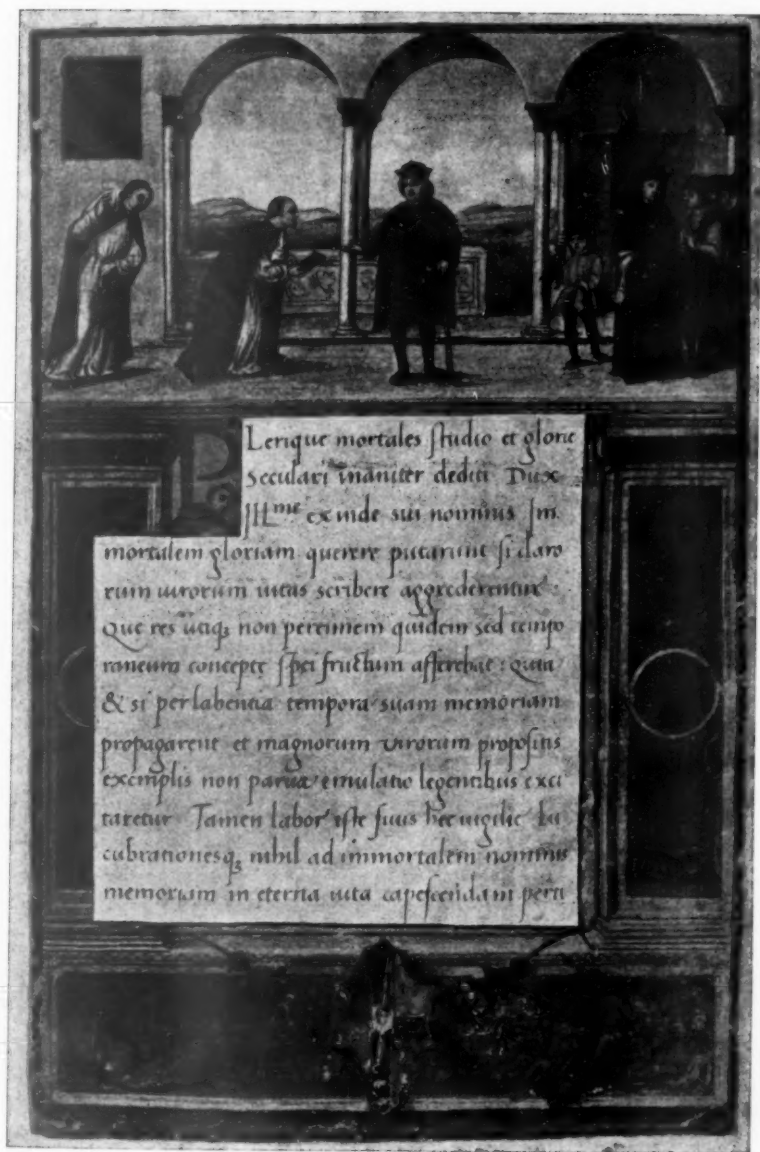 PLerique mortales studio et glorie
Seculari inaniter dediti Dux
Ill.me ex inde sui nominis Im
mortalem gloriam querere putarunt si claro
rum uirorum uitas scribere aggrederentur:
Que res utiq; non perennem quidem sed tempo
raneum concepte spei fructum afferebat: Quia
& si per labentia tempora suam memoriam
propagarent et magnorum virorum propositis
exemplis non parua emulatio legentibus exci
taretur Tamen labor iste suus hec uigilie Lu
cubrationesq; nihil ad immortalem nominis
memoriam in eterna uita capescendam perti